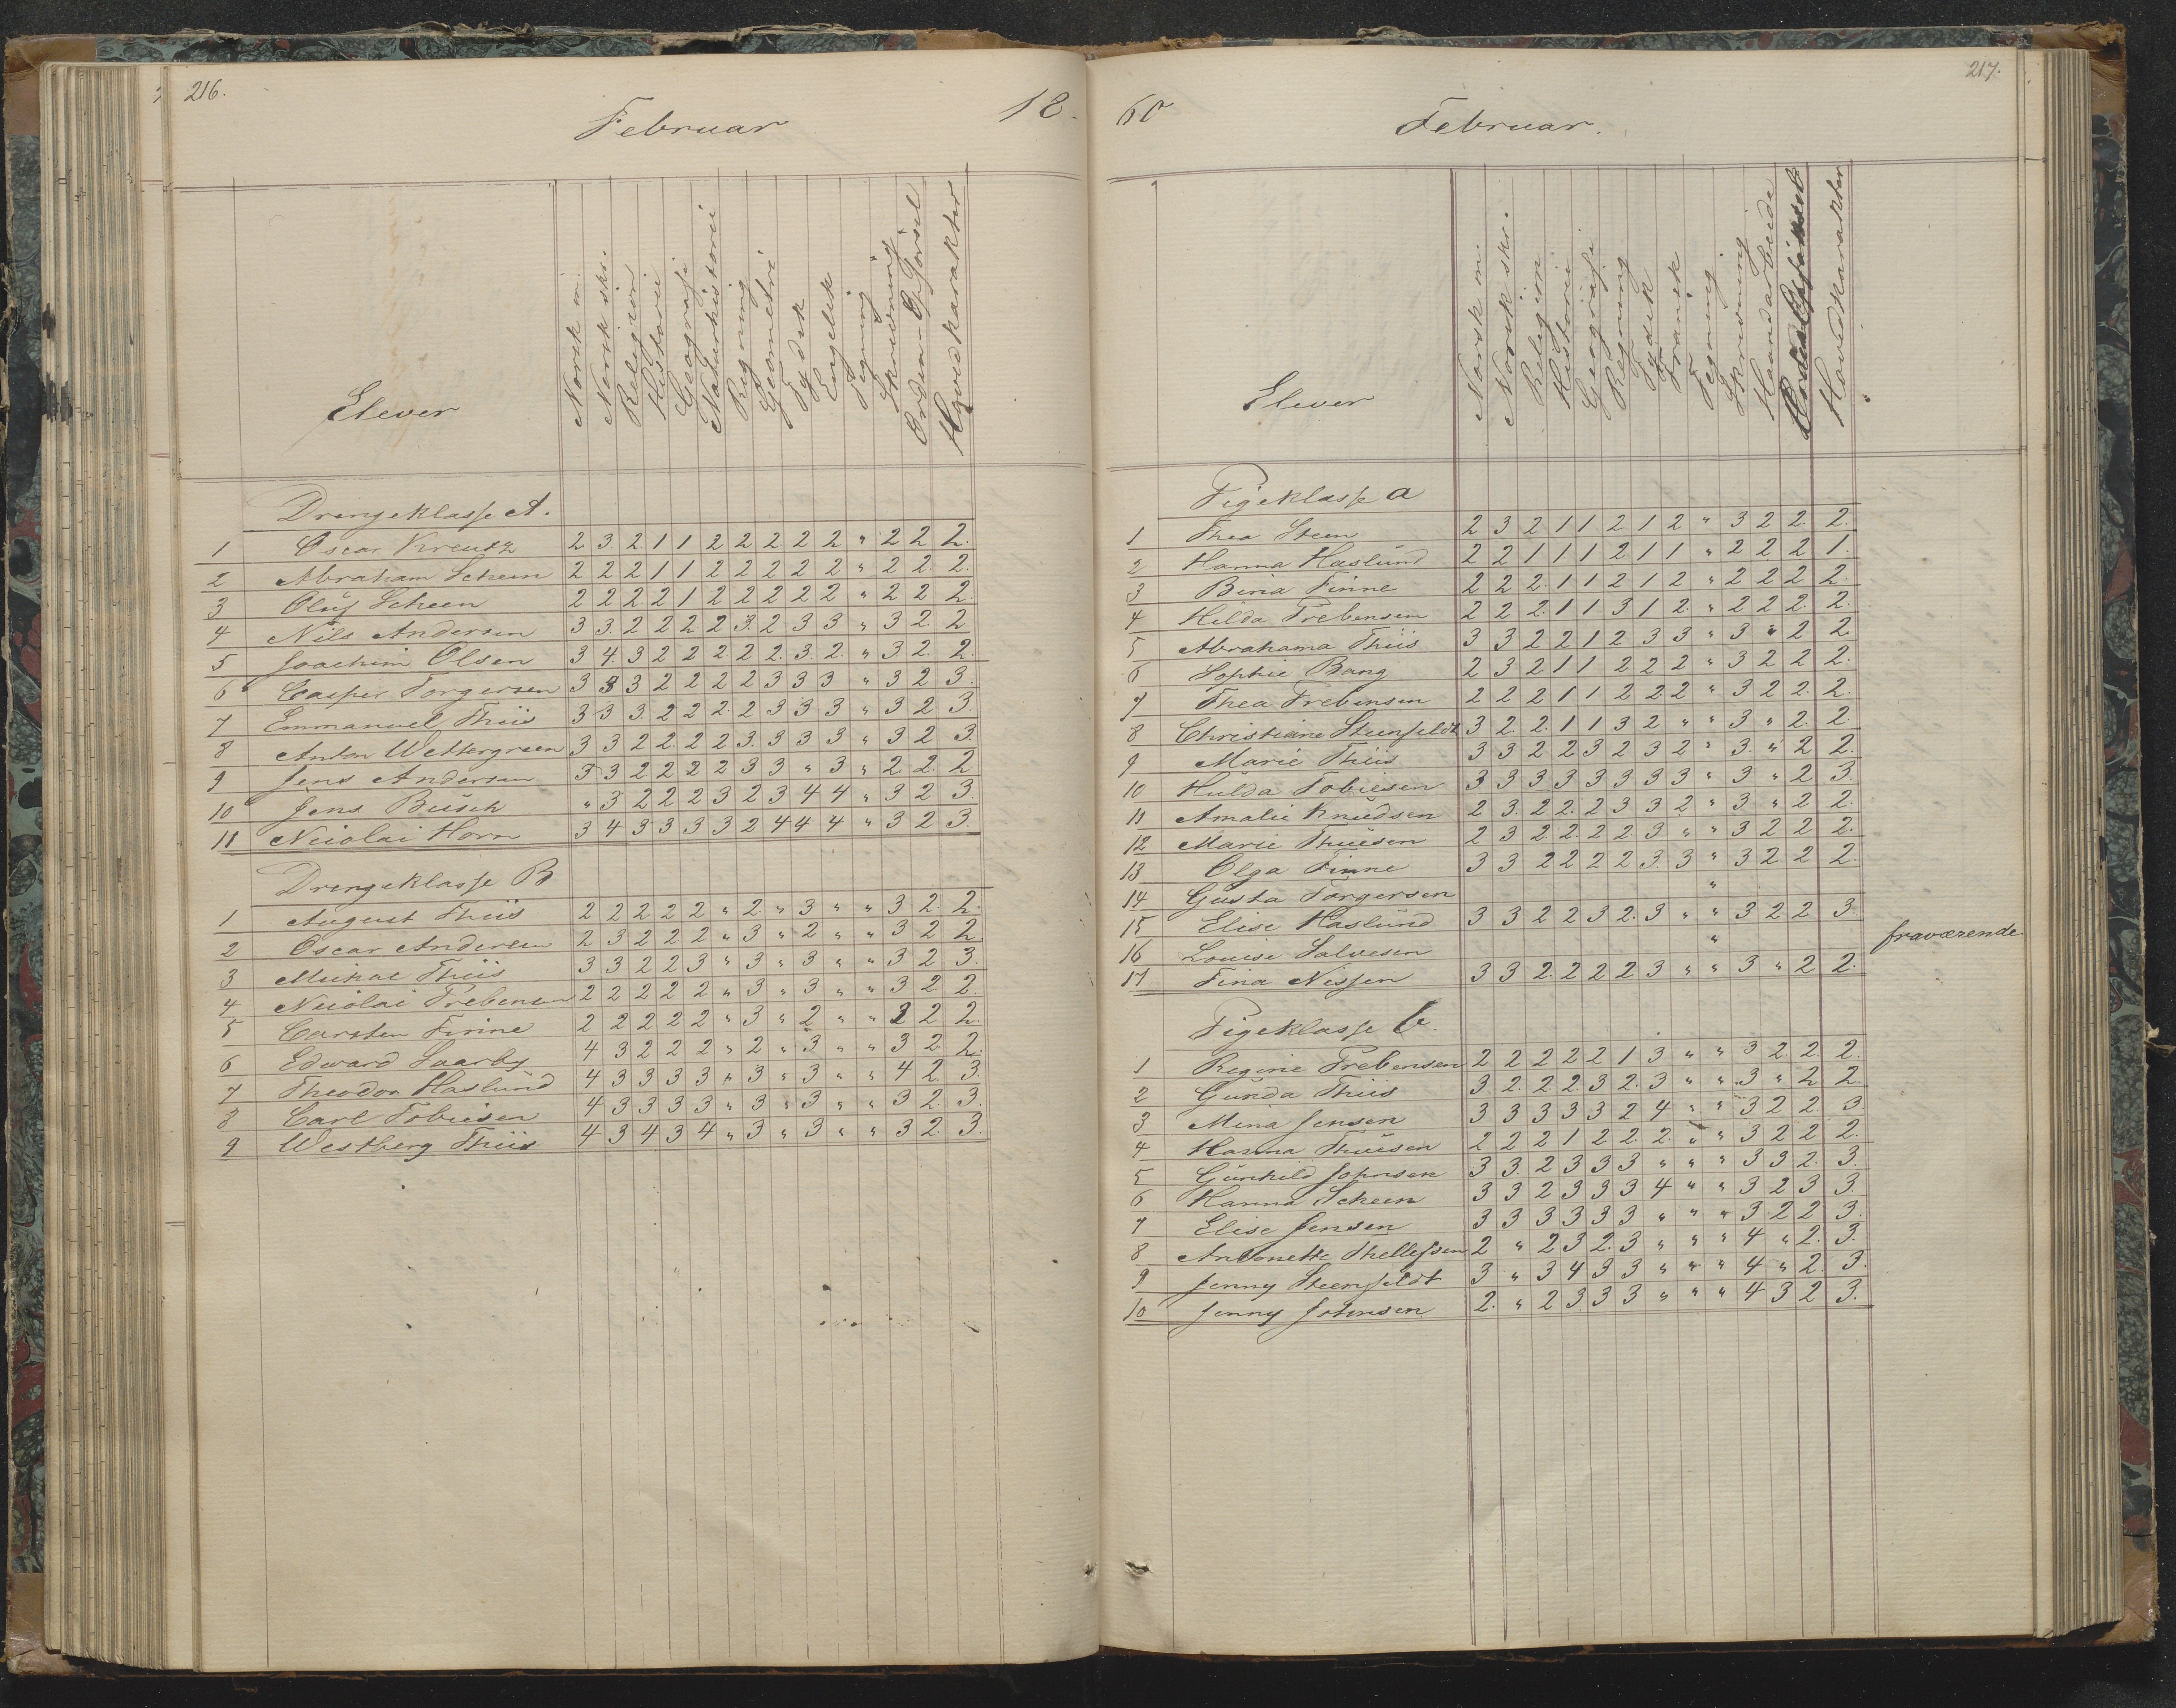 216.
Februar
18.
Elever
Norsk m.
Norsk skr.
Religion
Historie
Geografi
Naturhistorie
Regning
Geometri
Tydsk
Engelsk
Tegning
Skrivning
Orden Opførsel
Hovedkarakter
Drengeklasse A.
1 Oscar Kreutz 2 3 2 1 1 2 2 2 2 2 " 2 2 2.
2 Abraham Scheen 2 2 2 1 1 2 2 2 2 2 " 2 2. 2.
3 Oluf Scheen 2 2 2 2 1 2 2 2 2 2 " 2 2 2.
4 Nils Andersen 3 3. 2 2 2 2 3. 2 3 3 " 3 2. 2
5 Joachim Olsen 3 4. 3 2 2 2. 2 2. 3. 2. " 3 2. 2.
6 Casper Torgersen 3 3 3 2 2 2 2 3 3 3 " 3 2 3.
7 Emmanuel Thiis 3 3 3. 2 2 2. 2 3 3 3 " 3 2 3.
8 Anton Wettergreen 3 3 2 2. 2 2 3. 3 3 3 " 3 2 3.
9 Jens Andersen 3 3 2 2 2 2 3 3 " 3 " 2 2. 2
10 Jens Busch " 3 2 2 2 3 2 3 4 4 " 3 2 3.
11 Nicolai Horn 3 4 3 3 3 3 2 4 4 4 " 3 2 3.
Drengeklasse B
1 August Thiis 2 2 2 2 2 " 2 " 3 " " 3 2. 2.
2 Oscar Andersen 2 3 2 2 2 " 3 " 2 " " 3 2 2
3 Mickal Thiis 3 3 2 2 3 " 3 " 3 " " 3 2 3.
4 Nicolai Trebensen 2 2 2 2 2 " 3 " 3 " " 3 2 2.
5 Carsten Finne 2 2 2 2 2 " 3 " 2 " " 2 2 2.
6 Edvard Saarby 4 3 2 2 2 " 2 " 3 " " 3 2. 2.
7 Theodor Haslund 4 3 3 3 3 " 3 " 3 " " 4 2. 3.
8 Carl Tobiesen 4 3 3 3 3 " 3 " 3 " " 3 2. 3.
9 Westberg Thiis 4 3 4 3 4 " 3 " 3 " " 3 2. 3.
217.
60
Februar.
Elever
Norsk m.
Norsk skr.
Religion
Historie
Geografi
Regning
Tydsk
Fransk
Tegning
Skrivning
Haandarbeide
Hovedkarakter
Pigeklasse a
1 Thea Steen 2 3 2 1 1 2 1 2 " 3 2 2. 2.
2 Hanna Haslund 2 2 1 1 1 2 1 1 " 2 2 2 1.
3 Bina Finne 2 2 2. 1 1 2 1 2 " 2 2 2 2.
4 Hilda Trebensen 2 2 2. 1 1 3 1 2. " 2 2 2. 2.
5 Abrahama Thiis 3 3 2 2 1 2 3 3 " 3 " 2 2
6 Sophie Bang 2 3 2 1 1 2 2 2 " 3 2 2 2.
7 Thea Trebensen 2 2 2 1 1 2 2 2 " 3 2 2. 2.
8 Christiane Steenfeldt 3 2. 2. 1 1 3 2 " " 3 " 2. 2.
9 Marie Thiis 3 3 2 2 3 2 3 2 " 3. " 2 2.
10 Hulda Tobiesen 3 3 3 3 3 3 3 3 " 3 " 2 3.
11 Amalie Knudsen 2 3. 2 2. 2 3 3 2 " 3 " 2 2.
12 Marie Thuesen 2 3 2. 2. 2 2. 3 " " 3 2 2 2.
13 Olga Finne 3 3 2 2 2 2 3. 3 " 3 2 2 2.
14 Gusta Torgersen "
15 Elise Haslund 3 3 2 2 3 2. 3 " " 3 2 2 3.
16 Louise Salvesen " fraværende.
17 Fina Nissen 3 3 2. 2 2 2 3 " " 3 " 2 2.
Pigeklasse b.
1 Regine Trebensen 2 2 2 2 2 1 3 " " 3 2. 2. 2.
2 Gunda Thiis 3 2. 2. 2. 3 2. 3 " " 3 " 2 2
3 Mina Jensen 3 3 3 3 3 2 4 " " 3 2 2. 3.
4 Hanna Thuesen 2 2 2 1 2 2. 2. " " 3 2 2 2.
5 Gunhild Johnsen 3 3. 2 3 3 3 " " " 3 3 2. 3.
6 Hanna Scheen 3 3 2 3 3 3 4 " " 3 2 3 3.
7 Elise Jensen 3 3 3 3 3 3 " " " 3 2 2 3.
8 Antonette Thellefsen 2 " 2 3 2. 3 " " " 4 " 2. 3.
9 Jenny Steenfeldt 3 " 3 4 3 3 " " " 4 " 2. 3.
10 Jenny Johnsen 2. " 2 3 3 3 " " " 4 3 2 3.